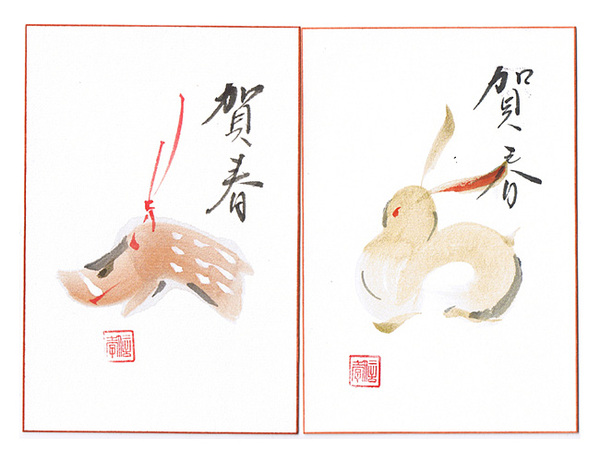 賀春
賀春